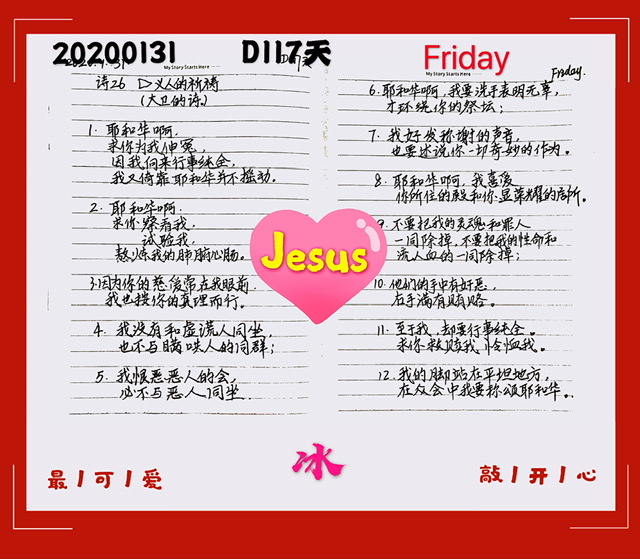 20200131 D117天 Friday
My Story Starts Here
诗26 ▷义人的祈祷
(大卫的诗)
1. 耶和华啊,
求你为我伸冤,
因我向来行事纯全,
我又倚靠耶和华并不摇动。
2. 耶和华啊.
求你察看我.
试验我.
熬炼我的肺腑心肠。
3.因为你的慈爱常在我眼前.
我也按你的真理而行。
4. 我没有和虚谎人同坐.
也不与瞒哄人的同群;
5. 我恨恶恶人的会,
必不与恶人同坐.
My Story Starts Here
Friday.
6. 耶和华啊,我要洗手表明无辜,
才环绕你的祭坛;
7. 我好发称谢的声音,
也要述说你一切奇妙的作为。
8. 耶和华啊,我喜爱
你所住的殿和你显荣耀的居所。
9. 不要把我的灵魂和罪人
一同除掉,不要把我的性命和
流人血的一同除掉;
10. 他们的手中有奸恶,
右手满有贿赂。
11. 至于我,却要行事纯全。
求你救赎我,怜恤我。
12. 我的脚站在平坦地方,
在众会中我要称颂耶和华。
Jesus
冰
最丨可丨爱
敲丨开丨心